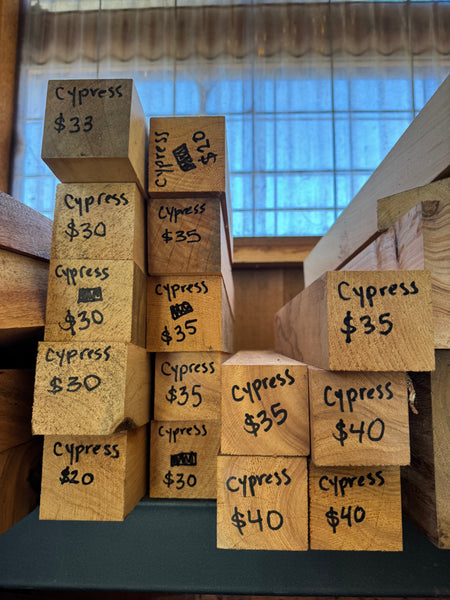 Cypress
$33
Cypress
$30
Cypress
$30
Cypress
$30
Cypress
$20
Cypress
$20
Cypress
$35
Cypress
$35
Cypress
$35
Cypress
$30
Cypress
$35
Cypress
$40
Cypress
$35
Cypress
$40
Cypress
$40